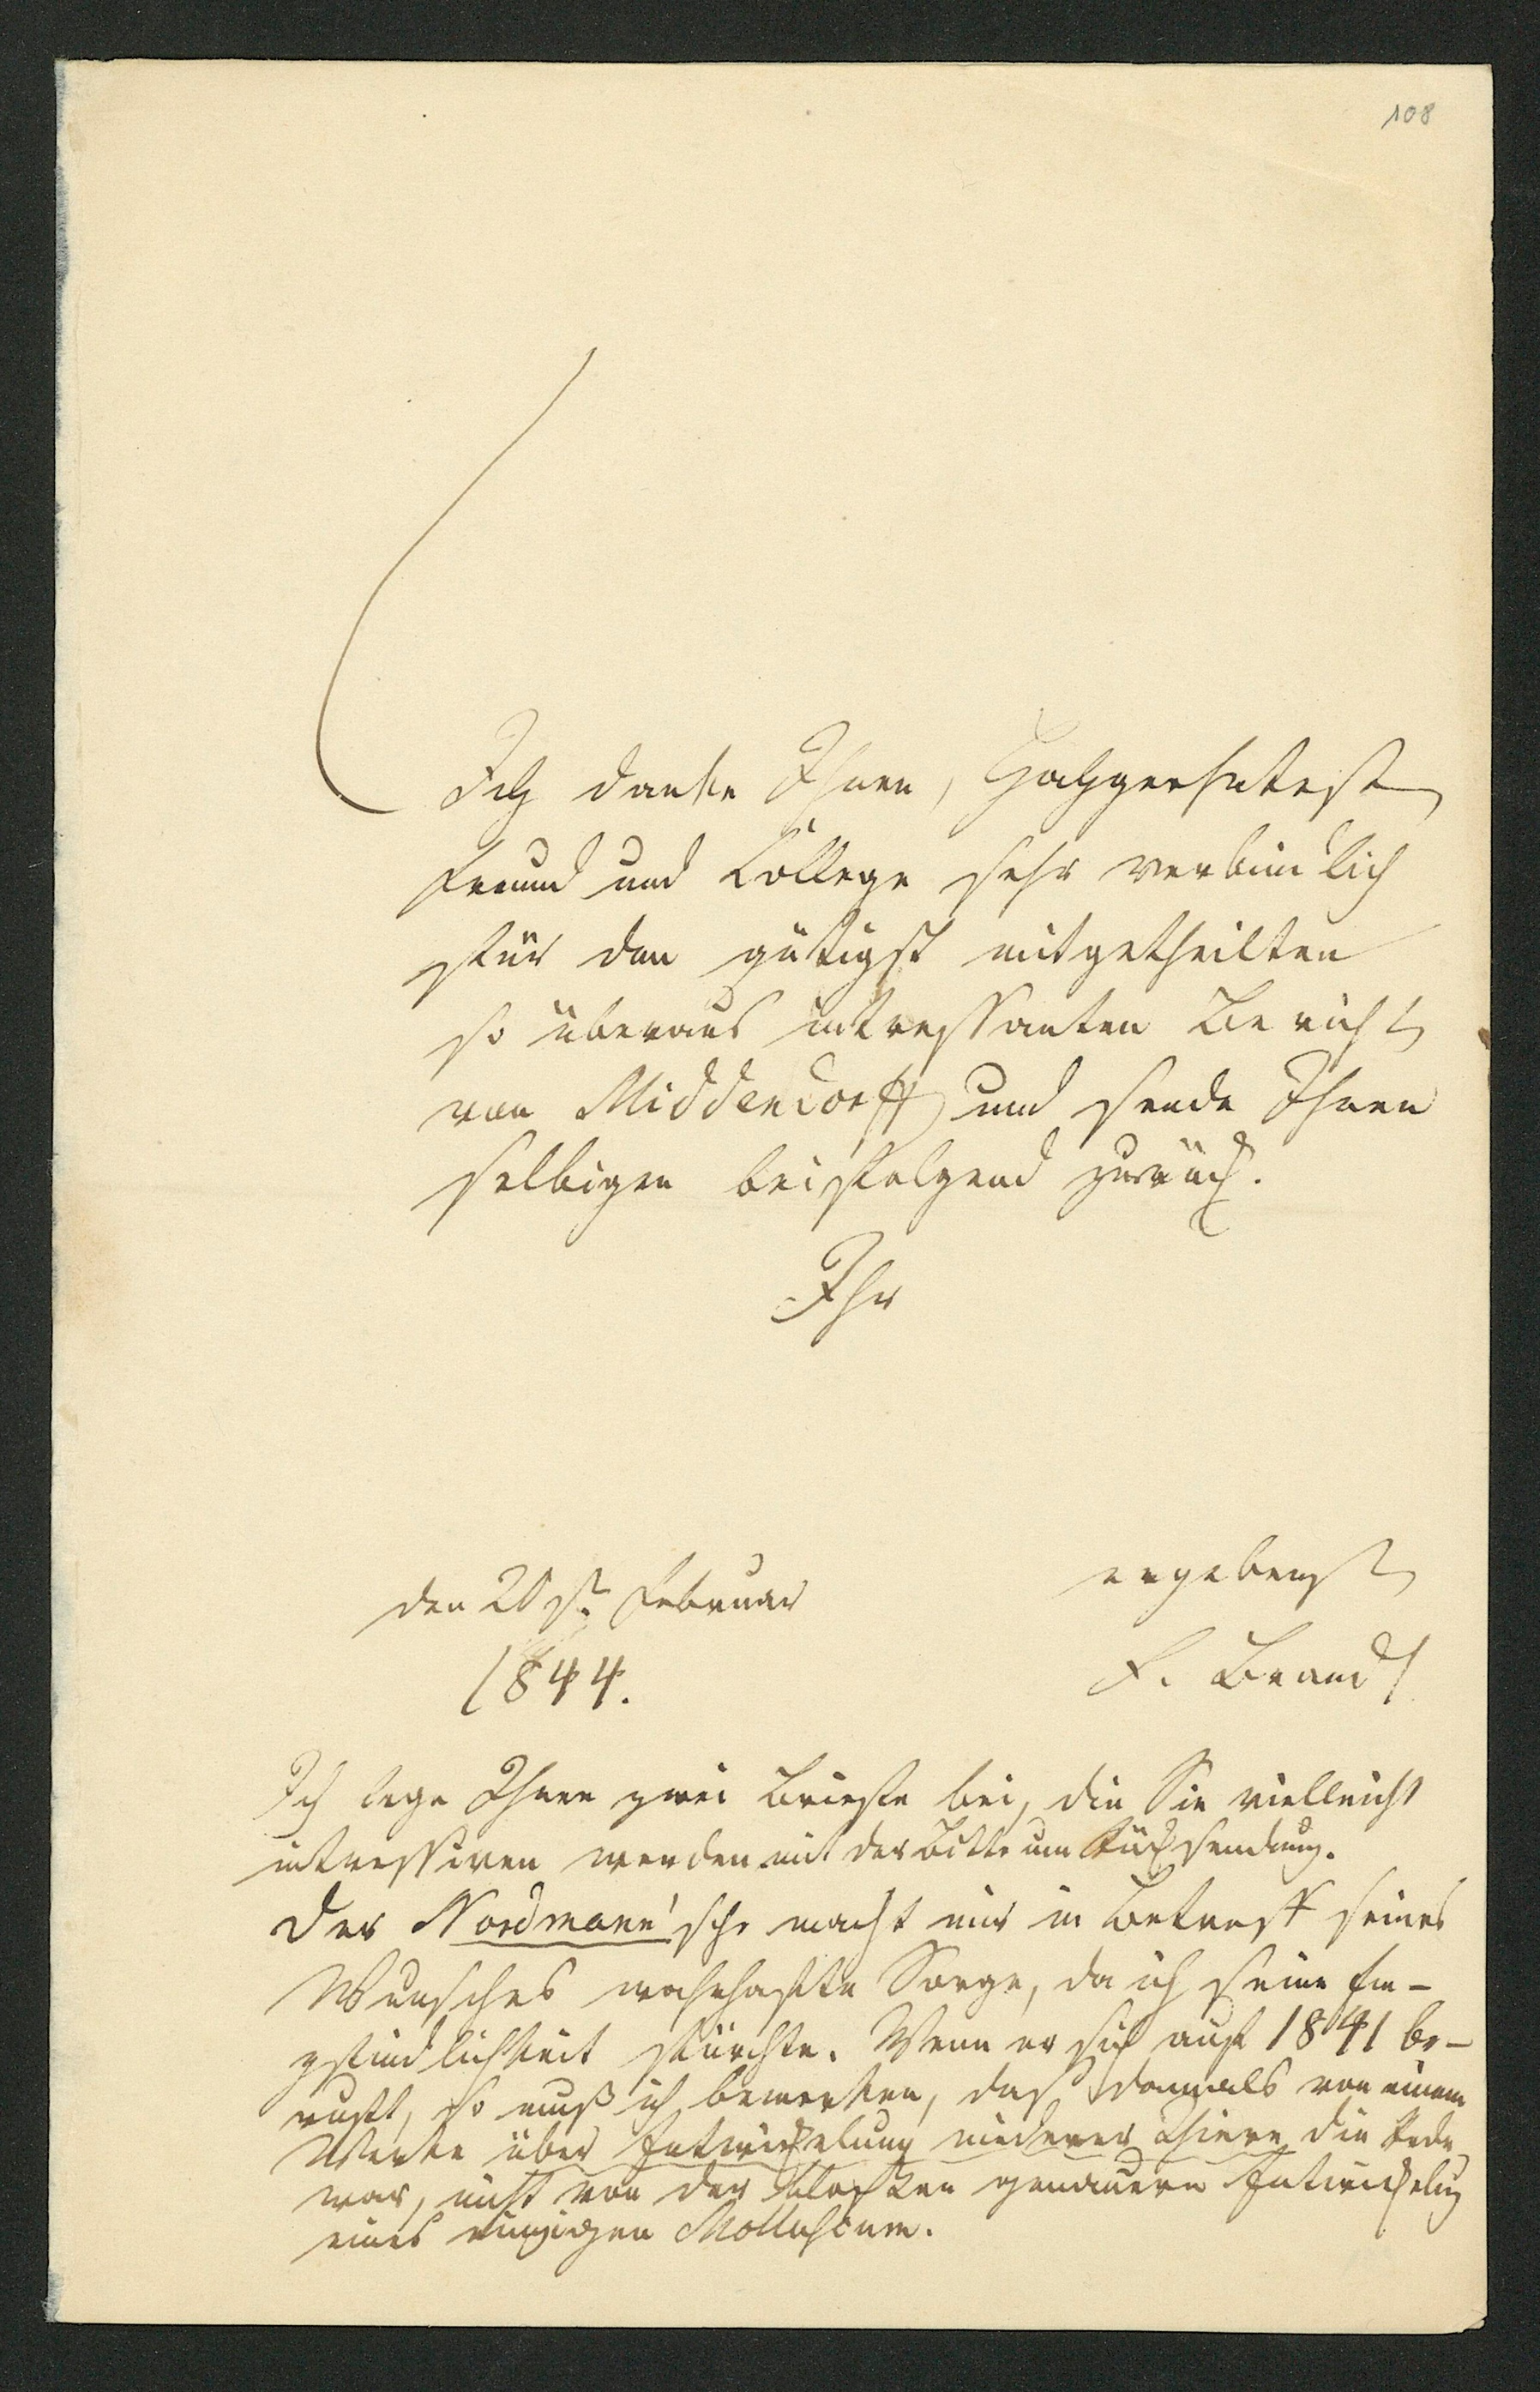 108
Ich danke Ihnen, Hochgeehrtester
Freund und College sehr verbindlich
für den gütigst mitgetheilten
so überaus intressanten Bericht
von Middendorff und sende Ihnen
selbigen beifolgend zurück.
Ihr
ergebenst
den 20st. Februar
F. Brandt
1844.
Ich lege Ihnen zwei Briefe bei, die Sie vielleicht
intressiren werden mit der Bitte um Rücksendung.
Der Nordmann'sche macht mir in Betreff seines
Wunsches wahrhafte Sorge, da ich seine Em-
pfindlichkeit fürchte. Wenn er sich auf 1841 be-
ruft, so muß ich bemerken, daß damals von einem
Werke über Entwickelung niederer Thiere die Rede
war, nicht von der bloßen genauern Entwickelung
eines einzigen Molluscum.